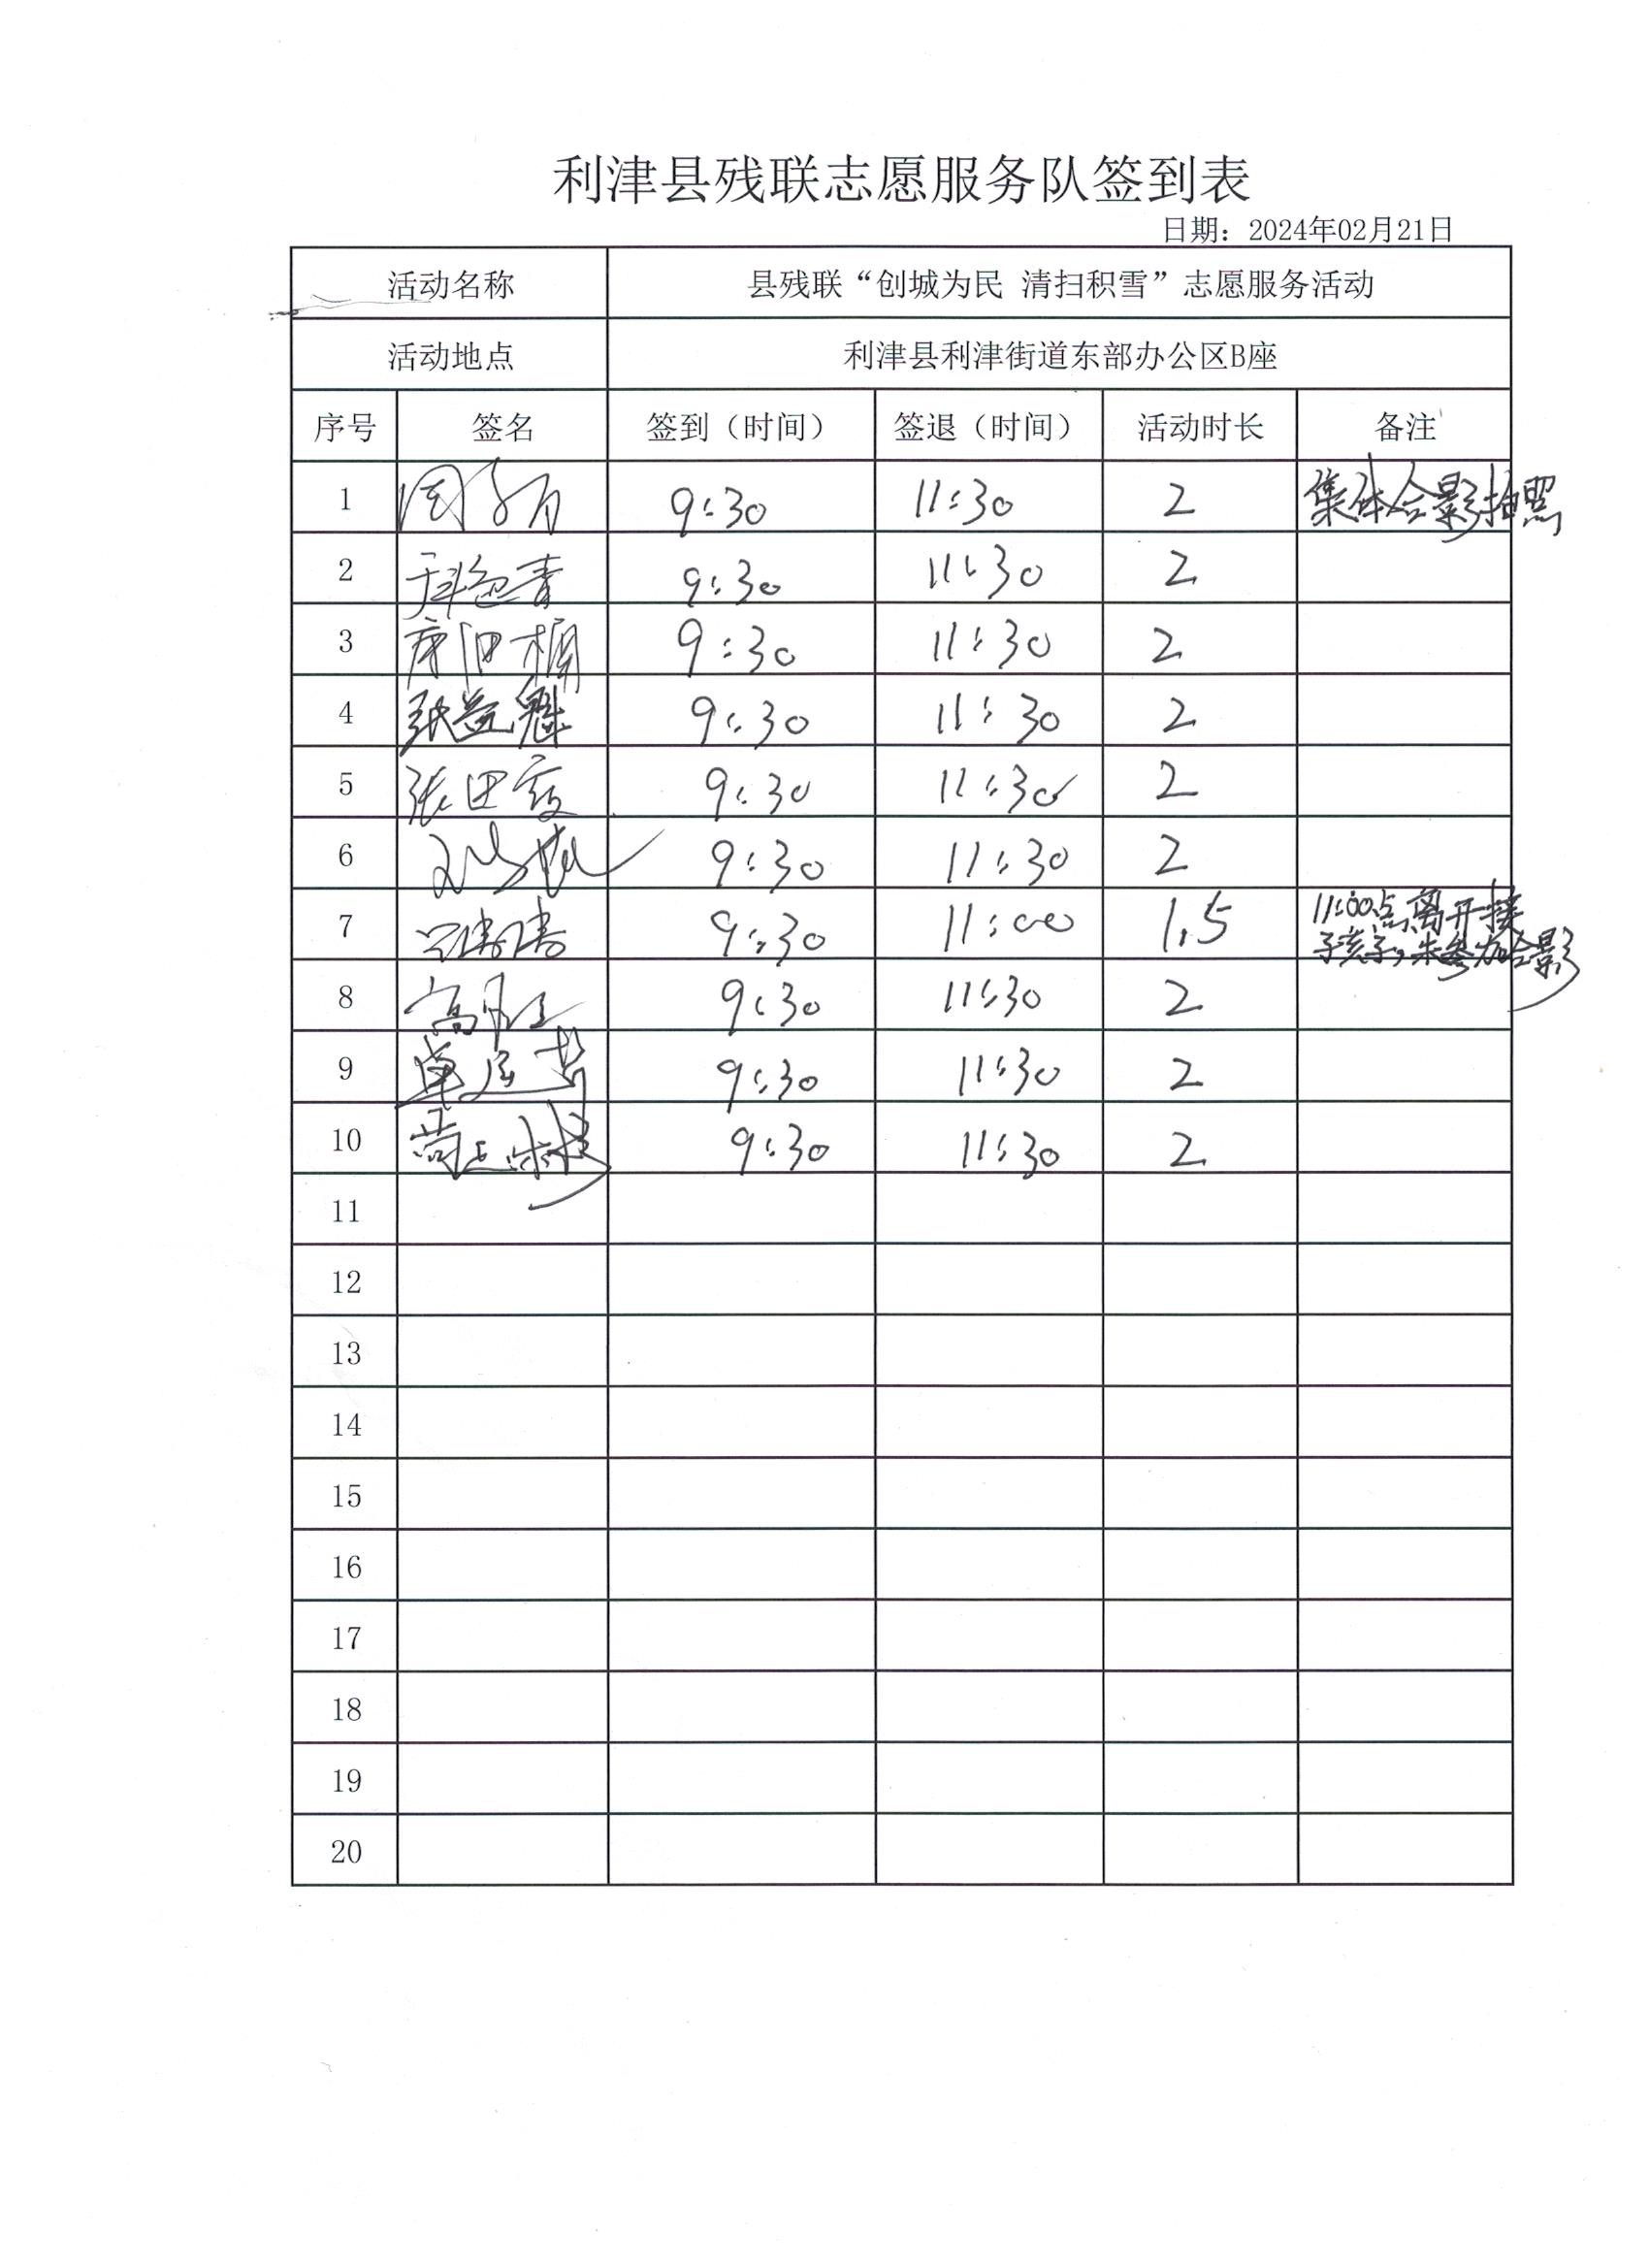 利津县残联志愿服务队签到表
日期：2024年02月21日
活动名称 县残联“创城为民 清扫积雪”志愿服务活动
活动地点 利津县利津街道东部办公区B座
序号 签名 签到（时间） 签退（时间） 活动时长 备注
1 9:30 11:30 2 集体合影拍照
2 9:30 11:30 2
3 9:30 11:30 2
4 张益魁 9:30 11:30 2
5 张田霞 9:30 11:30 2
6 9:30 11:30 2
7 9:30 11:00 1.5 11:00点离开接
孩子,未参加合影
8 9:30 11:30 2
9 9:30 11:30 2
10 9:30 11:30 2
11
12
13
14
15
16
17
18
19
20